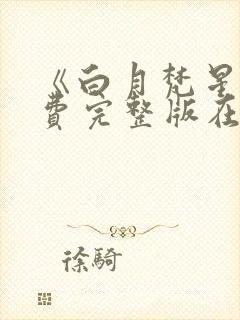 《白月梵星
费完整版在
徐騎